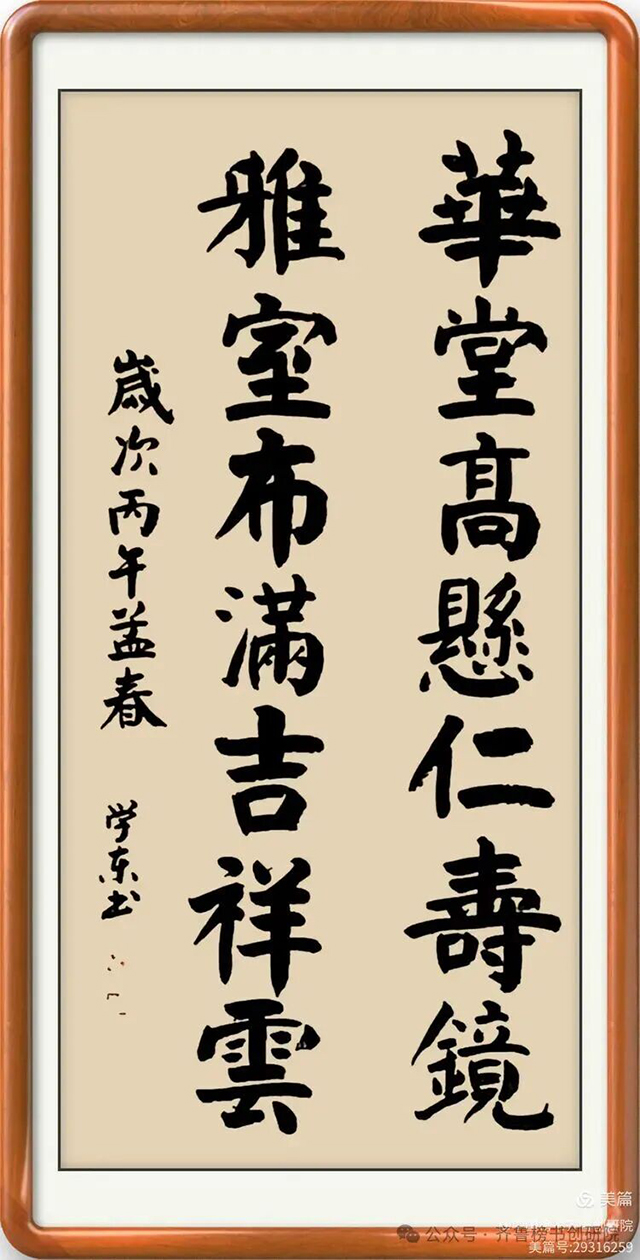 華堂高懸仁壽鏡
雅室布滿吉祥雲
歲次丙午孟春
学东书
美篇
公众号·齐鲁榜书创研院
美篇号:29316259